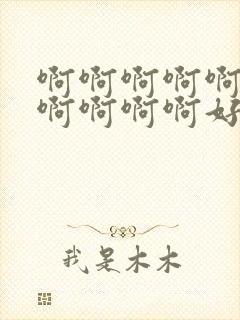 啊啊啊啊啊
啊啊啊啊好
我是木木